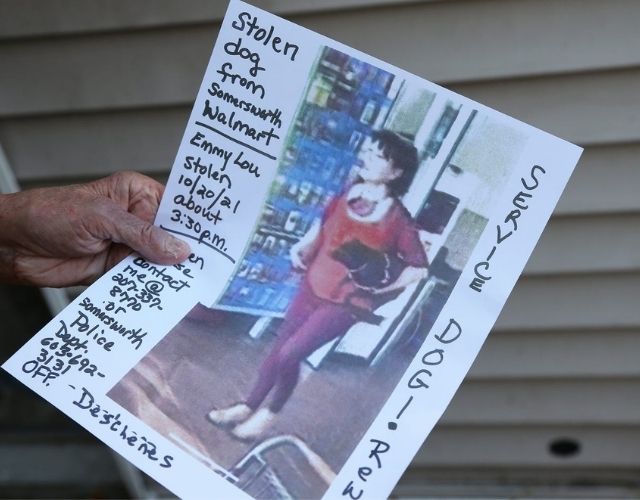 Stolen
dog
from
Somersworth
Walmart
Emmy Lou
Stolen
10/20/21
about
3:30pm.
contact
me @
207-337-
8770
or
Somersworth
Police
Dept.
603-692-
3131
OFF. - Deschenes
SERVICE DOG!. REW